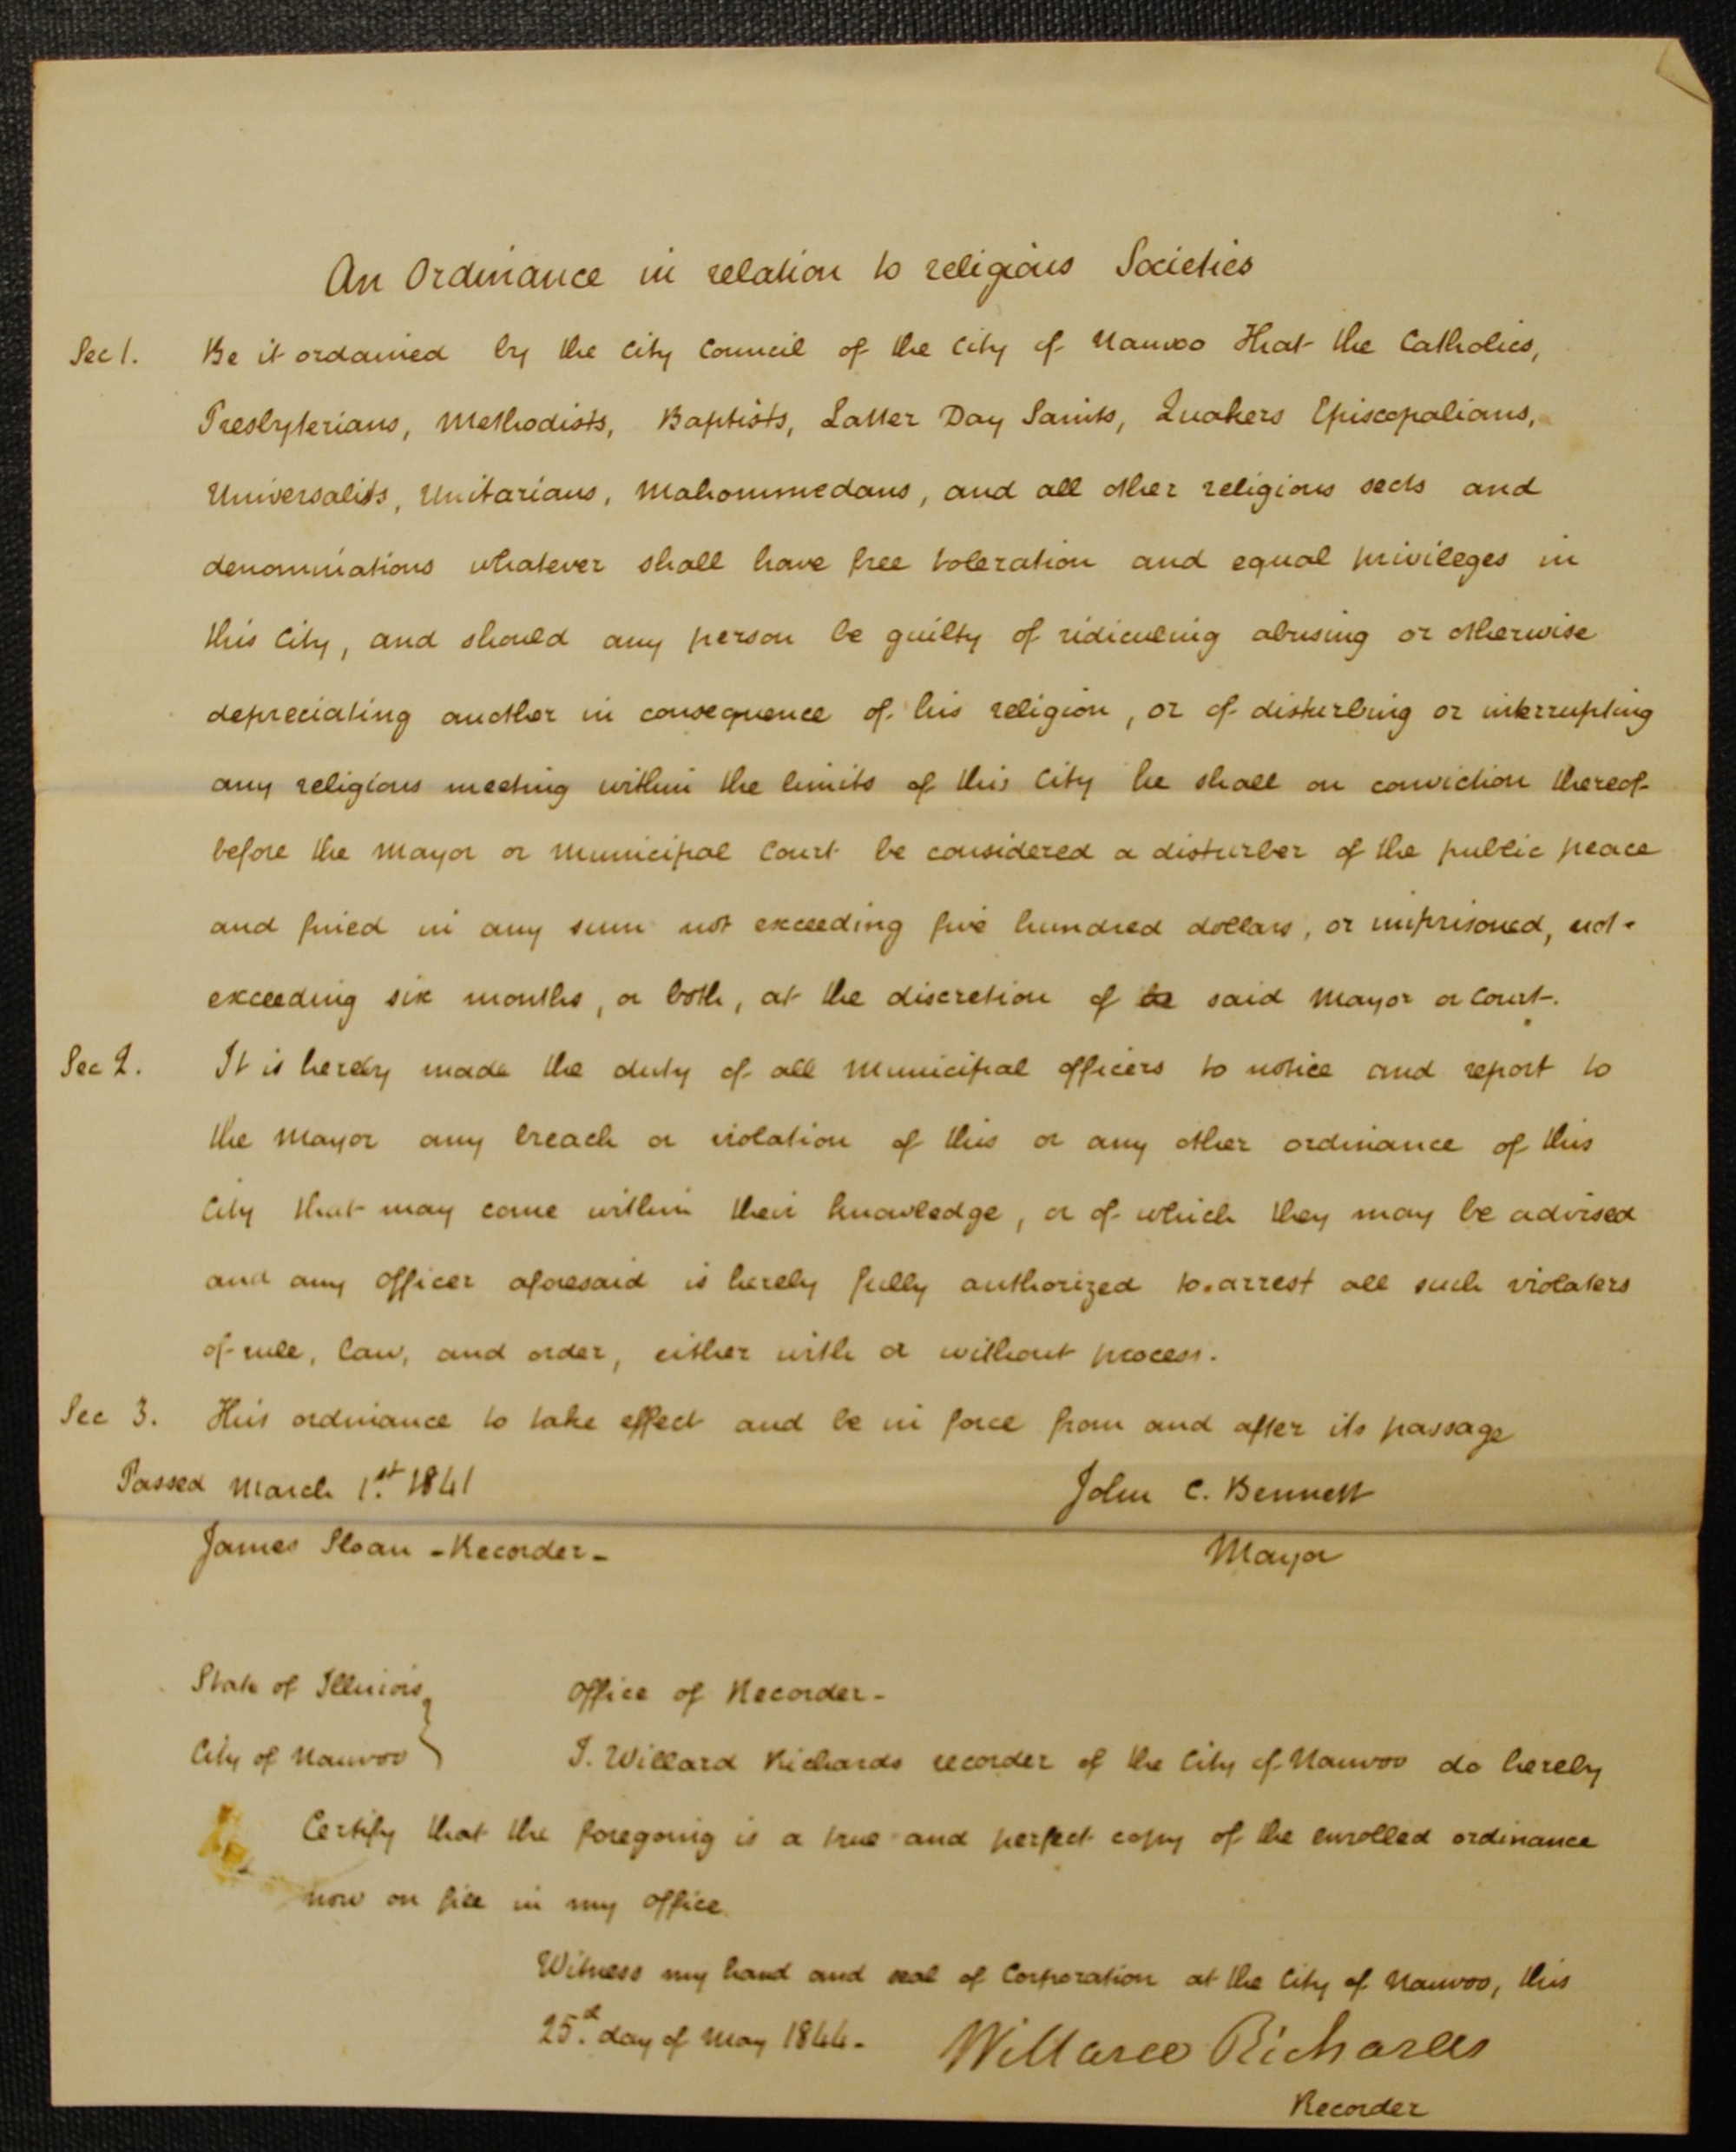 An Ordinance in relation to religious Societies
Sec 1. Be it ordained by the City Council of the City of Nauvoo That the Catholics,
Presbyterians, Methodists, Baptists, Latter Day Saints, Quakers Episcopalians,
Universalists, Unitarians, Mahommedans, and all other religious sects and
denominations whatever shall have free toleration and equal privileges in
this City, and should any person be guilty of ridiculing abusing or otherwise
depreciating another in consequence of his religion, or of disturbing or interrupting
any religious meeting within the limits of this City he shall on conviction thereof
before the Mayor or Municipal Court be considered a disturber of the public peace
and fined in any sum not exceeding five hundred dollars, or imprisoned, not
exceeding six months, or both, at the discretion of said Mayor or Court.
Sec 2. It is hereby made the duty of all Municipal officers to notice and report to
the Mayor any breach or violation of this or any other ordinance of this
City that may come within their knowledge, or of which they may be advised
and any officer aforesaid is hereby fully authorized to arrest all such violaters
of rule, law, and order, either with or without process.
Sec 3. This ordinance to take effect and be in force from and after its passage
Passed March 1st. 1841 John C. Bennett
James Sloan - Recorder - Mayor
State of Illinois } Office of Recorder -
City of Nauvoo } I. Willard Richards recorder of the City of Nauvoo do hereby
Certify that the foregoing is a true and perfect copy of the enrolled ordinance
now on file in my office.
Witness my hand and seal of Corporation at the City of Nauvoo, this
25.d day of May 1844. Willard Richards
Recorder